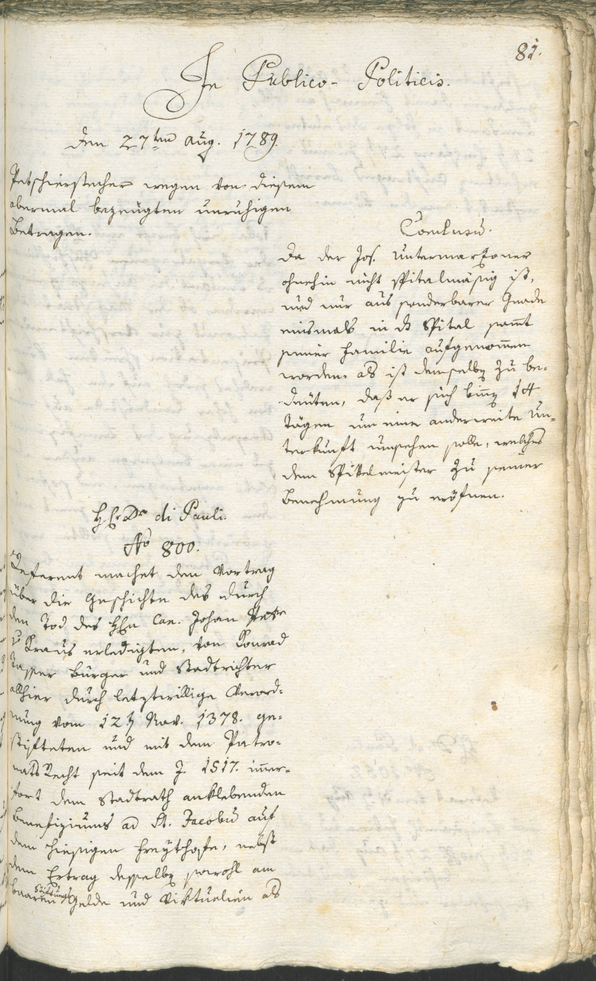 81.
In Publico-Politicis.
den 27ten Aug. 1789.
wegen von diesem
abermal bezeugten unruhigen
Betragen.
Conclusū.
Da der Jos. Untermarzoner
ohnehin nicht spitalmäsig ist,
und nur aus sonderbarer Gnade
einsmals in d Spital samt
seiner Familie aufgenommen
worden. als ist demselbẽ zu be-
deuten, daß er sich binẽ 14
Tägen um eine anderweite Un-
terkunft umsehen solle, welches
dem Spitalmeister zu seiner
Benehmung zu eröfnen.
H. Dr. di Pauli.
No 800.
Referent machet den Vortrag
über die Geschichte des durch
den Tod des Hẽn Can. Johan
v Kraus erledigten, von Konrad
Burger und Stadtrichter
allhier durch letztwillige Verord-
nung vom 12 Nov. 1378. ge-
stifteten und mit dem Patro-
nats Recht seit dem J. 1517. immer-
fort dem Stadtrath anklebenden
Benefiziums ad St. Jacobū auf
dem hiesigen Freythofe, nebst
dem Ertrag desselbẽ sowohl am
baaren Gelde und Viktualien als